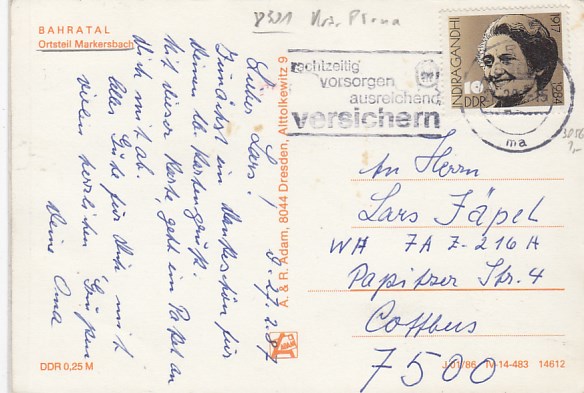 BAHRATAL
Ortsteil Markersbach
8301 Krs. Pirna
INDIRA GANDHI
1917
1984
10
DDR
rechtzeitig
vorsorgen
ausreichend
versichern
ma
3056
1,-
D. 27.2.87
Liebes Lars!
Zunächst ein Dankeschön für
Deinen lb. Kartengruß.
Mit dieser Karte geht ein Paket an
Dich mit ab.
Alles Gute für Dich mit
vielen herzlichen Grüßen
Deine Oma
A. & R. Adam, 8044 Dresden, Alttolkewitz 9
An Herrn
Lars Jäpel
WH 7A Z-216H
Papitzer Str. 4
Cottbus
7500
DDR 0,25 M
J 01/86 IV-14-483 14612